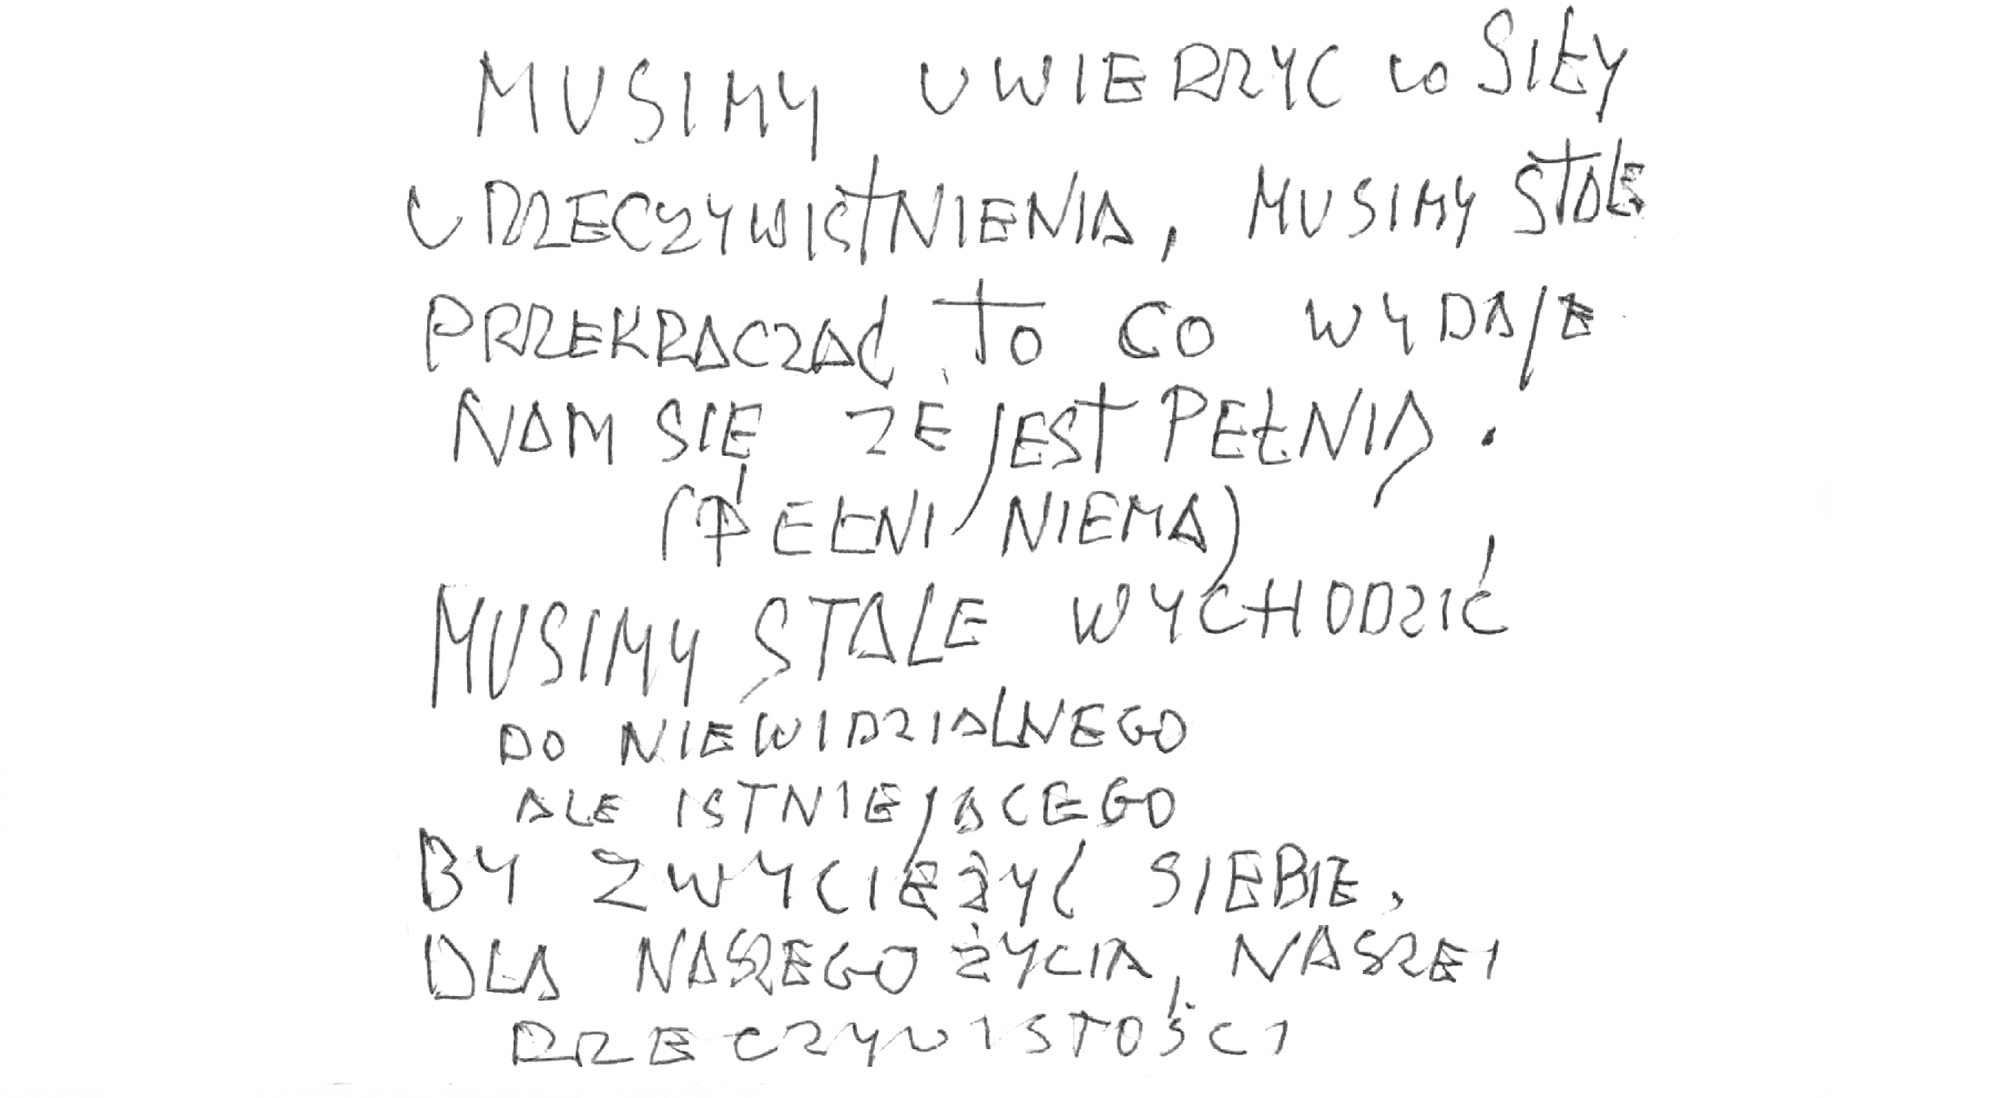 MUSIMY UWIERZYC w SIŁY
URZECZYWISTNIENIA, MUSIMY STALE
PRZEKRACZAĆ TO CO WYDAJE
NAM SIĘ ŻE JEST PEŁNIĄ.
(PEŁNI NIEMA)
MUSIMY STALE WYCHODZIĆ
DO NIEWIDZIALNEGO
ALE ISTNIEJĄCEGO
BY ZWYCIĘŻYĆ SIEBIE,
DLA NASZEGO ŻYCIA, NASZEJ
RZECZYWISTOŚCI